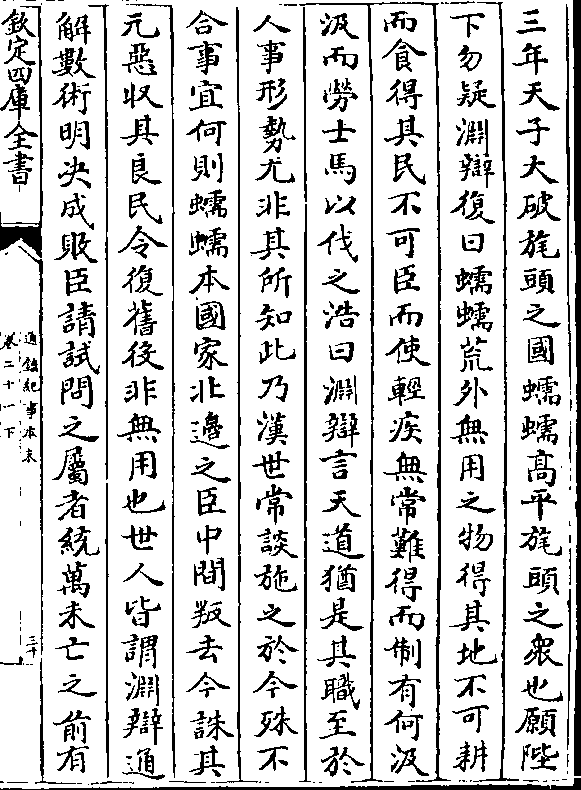 三年天子大破旄頭之國蠕蠕高平旄頭之衆也願陛
下勿疑淵辯復曰蠕蠕荒外無用之物得其地不可耕
而食得其民不可臣而使輕疾無常難得而制有何汲
汲而勞士馬以伐之浩曰淵辯言天道猶是其職至於
人事形勢尤非其所知此乃漢世常談施之於今殊不
合事宜何則蠕蠕本國家北邊之臣中間叛去今誅其
元惡收其良民令復舊役非無用也世人皆謂淵辯通
解數術明决成敗臣請試問之屬者統萬未亡之前有
欽定四庫全書
通鑑紀事本末
卷二十一下
三十